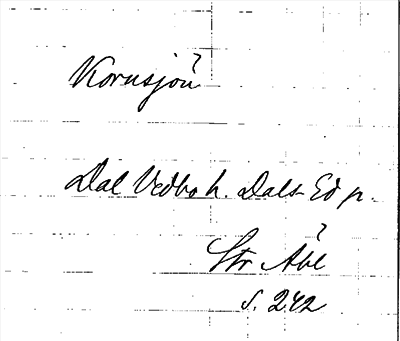 Kornsjön
Dal Vedbo h. Dals-Ed p.
Str Åbl
s. 242